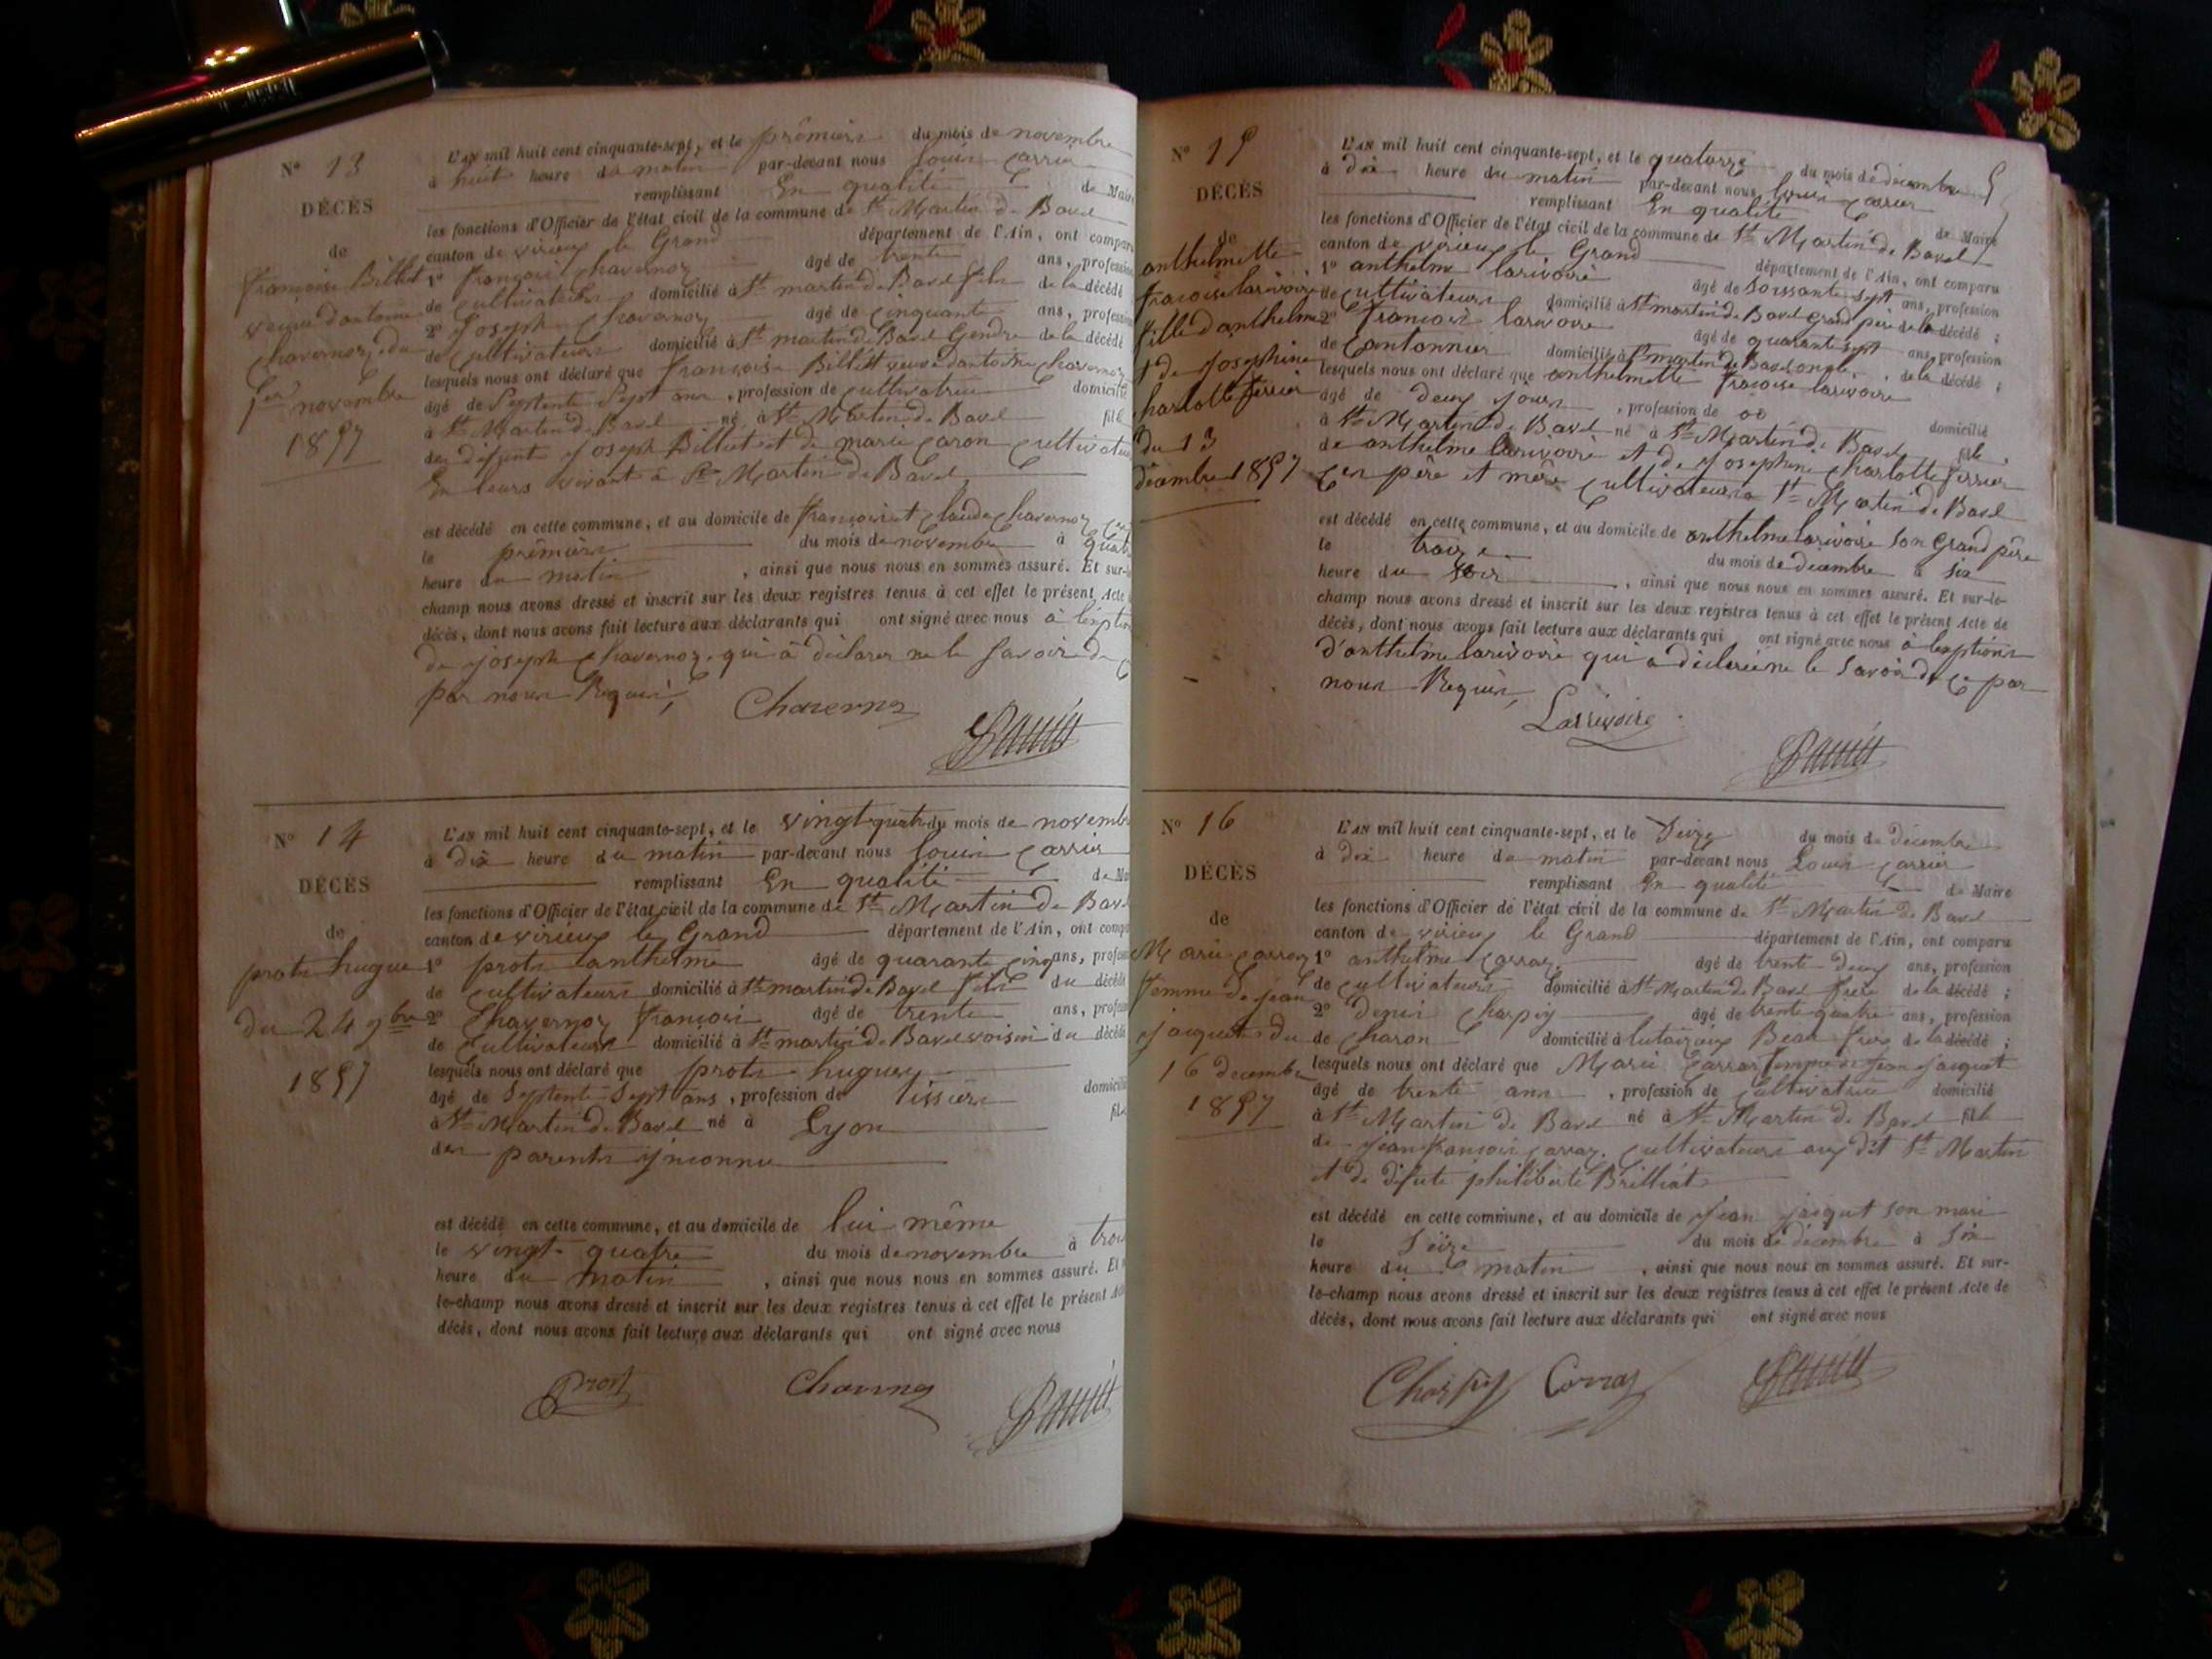 N° 13
DÉCÈS
de
françoise Billiet
veuve d'antoine
chavernoz, du
1er novembre
1857
L'AN mil huit cent cinquante-sept, et le prêmiers du mois de novembre
à huit heure du matin par-devant nous Louis Carrier
remplissant En qualité de Maire
les fonctions d'Officier de l'état civil de la commune de St Martin de Bavel
canton de virieux le Grand département de l'Ain, ont comparu
1° françois chavernoz âgé de trente ans, profession
de cultivateurs domicilié à St martin de Bavel fils de la décédé
2° Joseph chavernoz âgé de cinquante ans, profession
de cultivateurs domicilié à St martin de Bavel Gendre de la décédé
lesquels nous ont déclaré que françoise Billiet veuve d'antoine chavernoz
âgé de Septente Sept ans, profession de cultivatrice domicilié
à St Martin de Bavel né à St Martin de Bavel fil
des defunt Joseph Billiet et de marie caron cultivateu
En leurs vivant à St Martin de Bavel
est décédé en cette commune, et au domicile de françois et claude chavernoz
le prêmiers du mois de novembre à quatr
heure du matin, ainsi que nous nous en sommes assuré. Et sur-le
champ nous avons dressé et inscrit sur les deux registres tenus à cet effet le présent Acte
décès, dont nous avons fait lecture aux déclarants qui ont signé avec nous à l'exption
de joseph chavernoz. qui à déclarer ne le savoir de ce
par nous Requis,
Chavernoz
N° 14
DÉCÈS
de
prots hugue
du 24 9bre
1857
L'AN mil huit cent cinquante-sept, et le vingt quatre du mois de novemb
à dix heure du matin par-devant nous Louis Carrier
remplissant En qualité de Ma
les fonctions d'Officier de l'état civil de la commune de St Martin de Bav
canton de virieux le Grand département de l'Ain, ont compa
1° prots anthelme âgé de quarante cinq ans, profess
de cultivateurs domicilié à St martin de Bavel fils du décédé
2° Chavernoz françois âgé de trente ans, profess
de cultivateurs domicilié à St martin de Bavel voisin du décédé
lesquels nous ont déclaré que prots huguey
âgé de Septente Sept ans, profession de tissiers domicilié
à St Martin de Bavel né à Lyon fil
des parents ynconnu
est décédé en cette commune, et au domicile de lui même
le vingt quatre du mois de novembre à troi
heure du matin, ainsi que nous nous en sommes assuré. Et
le-champ nous avons dressé et inscrit sur les deux registres tenus à cet effet le présent Act
décès, dont nous avons fait lecture aux déclarants qui ont signé avec nous
Prost Chavernoz
N° 15
DÉCÈS
de
anthelmette
françoise larivoire
fille d'anthelme
& de Josephine
charlotte ferrier
du 13
décembre 1857
L'AN mil huit cent cinquante-sept, et le quatorze du mois de décembre
à dix heure du matin par-devant nous Louis Carrier
remplissant En qualité de Maire
les fonctions d'Officier de l'état civil de la commune de St Martin de Bavel
canton de virieux le Grand département de l'Ain, ont comparu
1° anthelme larivoire âgé de soissante sept ans, profession
de cultivateurs domicilié à St martin de Bavel grand père de la décédé ;
2° françois larivoire âgé de quarante sept ans, profession
de Cantonnier domicilié à St martin de Bavel oncle de la décédé ;
lesquels nous ont déclaré que anthelmette françoise larivoire
âgé de deux jours, profession de 00 domicilié
à St Martin de Bavel né à St Martin de Bavel file
de anthelme larivoire et de Josephine charlotte ferrier
ces père et mère cultivateurs a St Martin de Bavel
est décédé en cette commune, et au domicile de anthelme larivoire son Grand père
le traize du mois de décembre à six
heure du soir, ainsi que nous nous en sommes assuré. Et sur-le-
champ nous avons dressé et inscrit sur les deux registres tenus à cet effet le présent Acte de
décès, dont nous avons fait lecture aux déclarants qui ont signé avec nous à l'exptions
d'anthelme larivoire qui a déclaré ne le savoir de ce par
nous Requis,
Larrivoire
N° 16
DÉCÈS
de
Marie Carraz
femme de jean
jacquet du
16 decembre
1857
L'AN mil huit cent cinquante-sept, et le Seize du mois de décembre
à dix heure du matin par-devant nous Louis Carrier
remplissant En qualité de Maire
les fonctions d'Officier de l'état civil de la commune de St Martin de Bavel
canton de virieux le Grand département de l'Ain, ont comparu
1° anthelme Carraz âgé de trente deux ans, profession
de cultivateurs domicilié à St Martin de Bavel frère de la décédé ;
2° Denis Charpiy âgé de trente quatre ans, profession
de charon domicilié à lutaizieux Beau frère de la décédé ;
lesquels nous ont déclaré que Marie Carraz femme de Jean jacquet
âgé de trente ans, profession de Cultivatrice domicilié
à St Martin de Bavel né à St Martin de Bavel file
de Jean françois Carraz. cultivateurs aux dit St Martin
et de défute philiberte Brilliat
est décédé en cette commune, et au domicile de Jean jacquet son mari
le Seize du mois de décembre à Six
heure du matin, ainsi que nous nous en sommes assuré. Et sur-
le-champ nous avons dressé et inscrit sur les deux registres tenus à cet effet le présent Acte de
décès, dont nous avons fait lecture aux déclarants qui ont signé avec nous
Charpiy Carraz